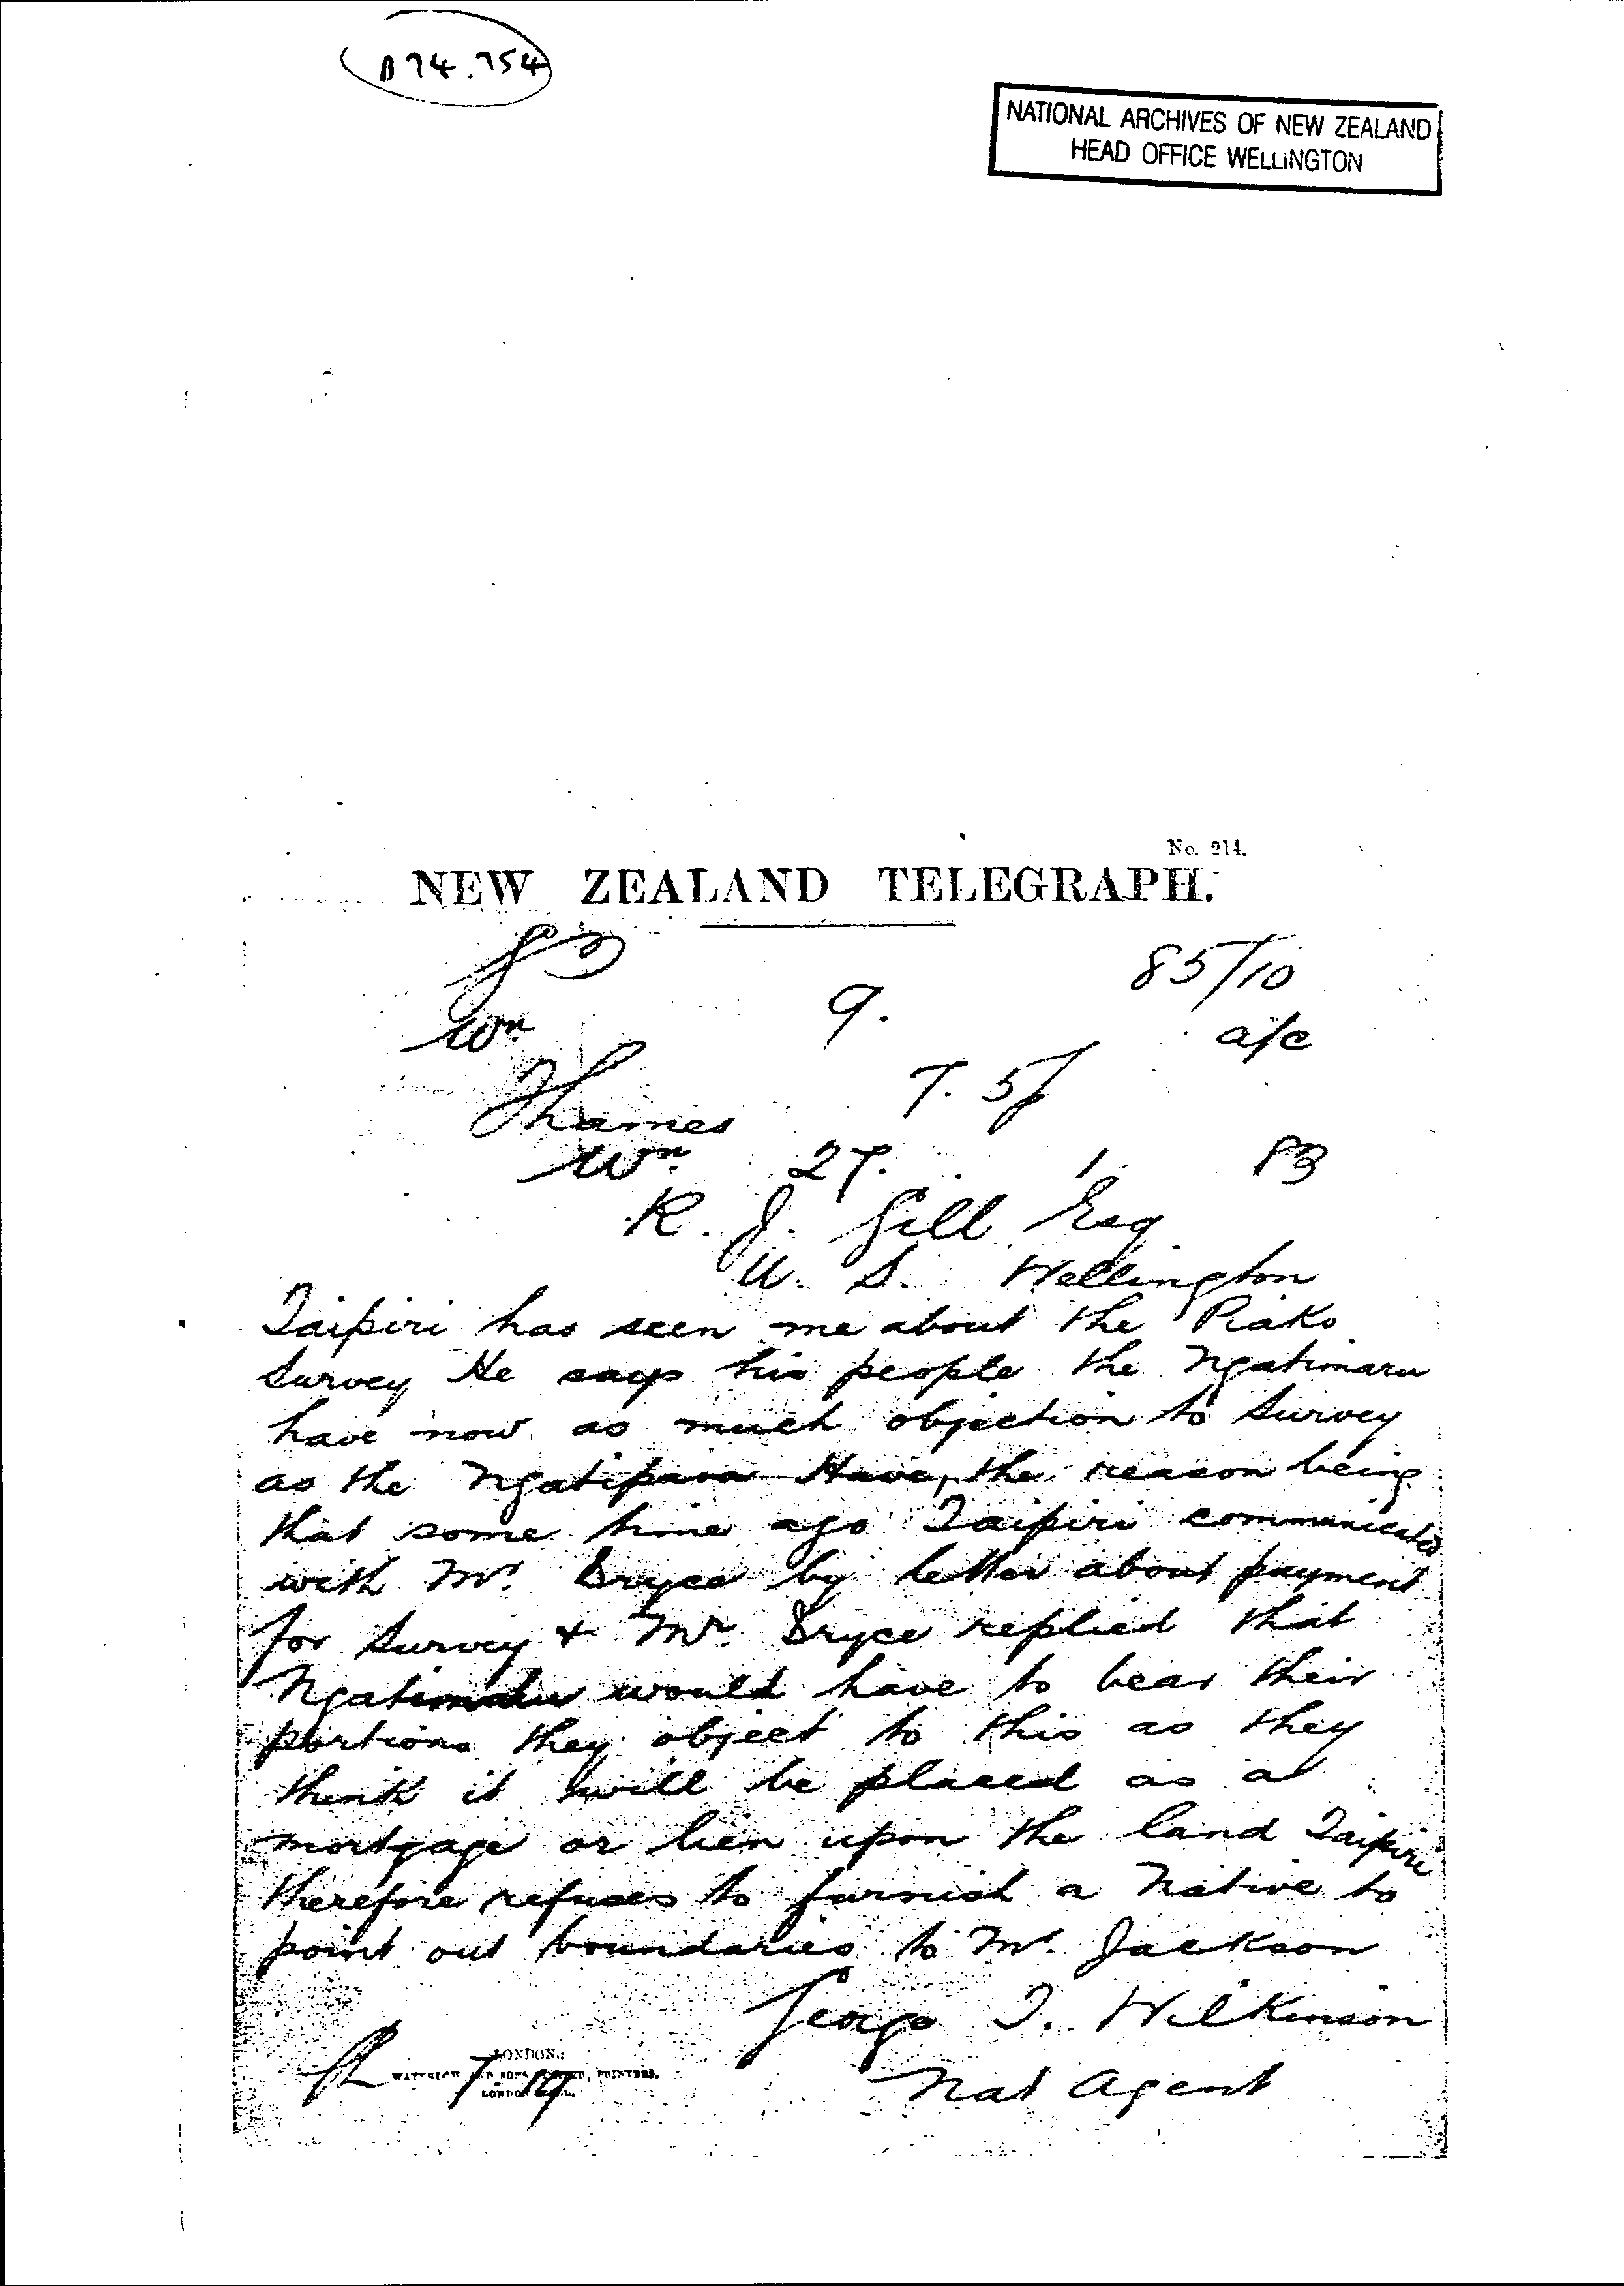 B74.754
NATIONAL ARCHIVES OF NEW ZEALAND
HEAD OFFICE WELLINGTON
No. 214.
NEW ZEALAND TELEGRAPH.
85/10
Wn 9. a/c
Thames 7.
Wn 27. 1. 83
R. J. Gill Esq
U. S. Wellington
Taipiri has seen me about the Piako
Survey He says his people the Ngatimaru
have now as much objection to Survey
as the Ngatipaoa Have, the reason being
that some time ago Taipiri communicated
with Mr. Bryce by letter about payment
for Survey & Mr. Bryce replied that
Ngatimaru would have to bear their
portions they object to this as they
think it will be placed as a
mortgage or lien upon the land Taipiri
therefore refuses to furnish a Native to
point out boundaries to Mr. Jackson
George T. Wilkinson
Nat Agent
LONDON:
WATERLOW AND SONS LIMITED, PRINTERS,
LONDON WALL.